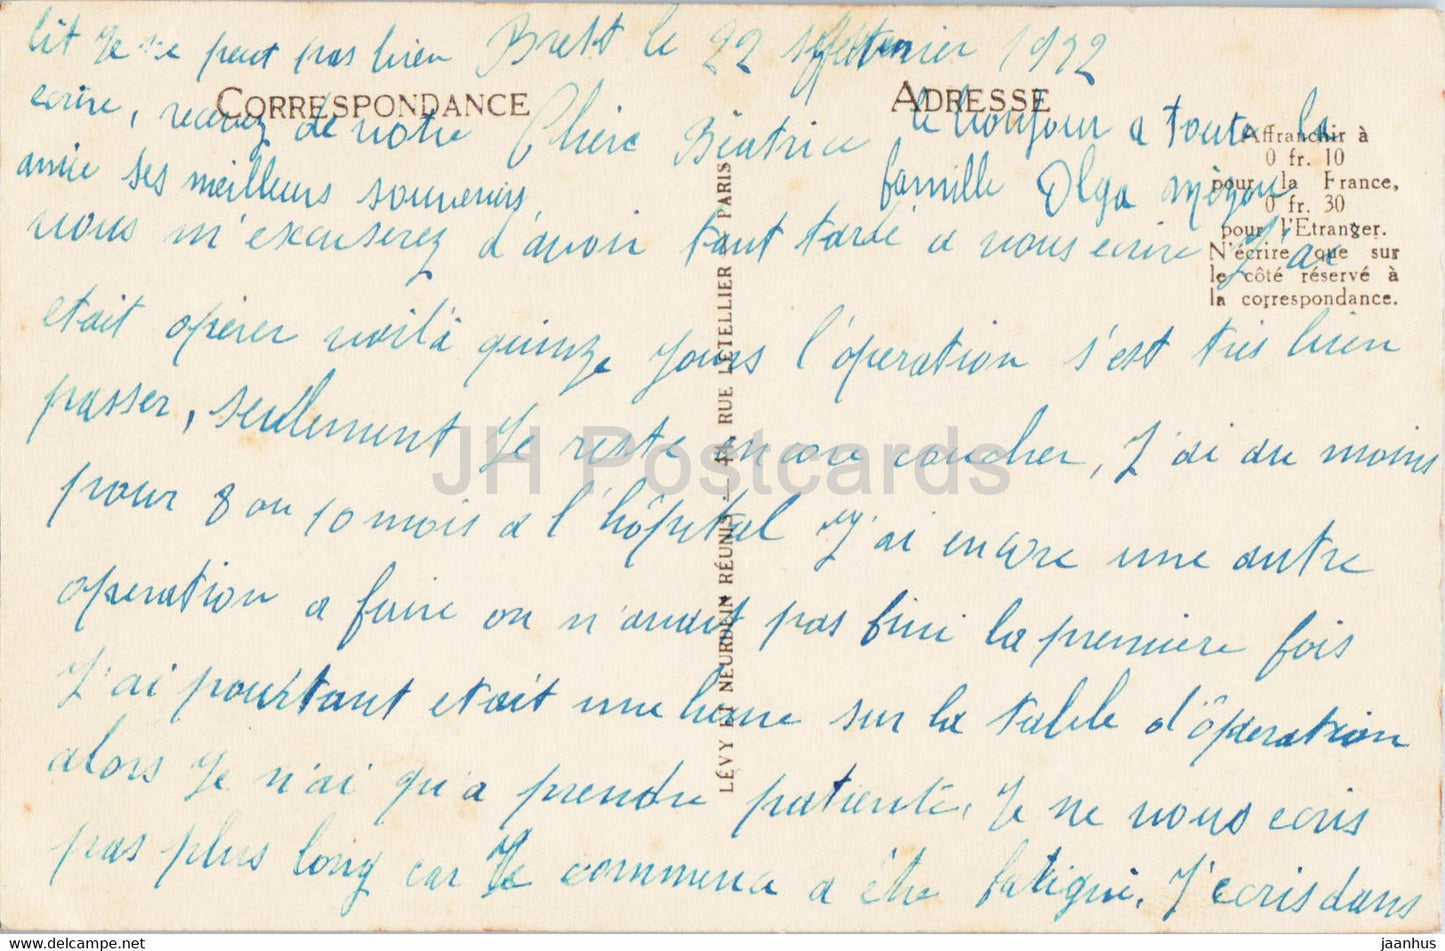 Brest le 22 1922
CORRESPONDANCE
ADRESSE
Chère Béatrice
vous m'excuserez d'avoir tant tardé a vous ecrire J'ai
etait opérer voilà quinze jours l'óperation s'est très bien
passer, seulement Je reste encore coucher, J'ai au moins
pour 8 ou 10 mois a l'hôpital J'ai encore une autre
operation a faire on n'avait pas fini la premiere fois
J'ai pourtant etait une heure sur la table d'ôperation
alors Je n'ai qu'a prendre patiente, Je ne vous ecris
pas plus long car Je commence a être fatigué, J'ecris dans
lit Je ne peut pas bien
ecrire, recevez de votre
amie ses meilleurs souvenirs,
le bonjour a toute la
famille Olga
Affranchir à
0 fr. 10
pour la France,
0 fr. 30
pour l'Etranger.
N'écrire que sur
le côté réservé à
la correspondance.
LÉVY ET NEURDEIN RÉUNIS — 44, RUE LETELLIER — PARIS
JH Postcards
www.delcampe.net
jaanhus